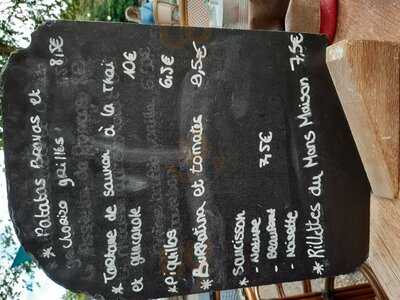 * Patatas Bravas et 8,5€
chorizo grillés
* Tartare de saumon à la Thaï
et guacamole 10€
* Piquillos 6,5€
* Burratina et tomates 9,5€
* Saucisson 7,5€
- Nature
- Beaufort
- Noisette
* Rillettes du Mans Maison 7,5€